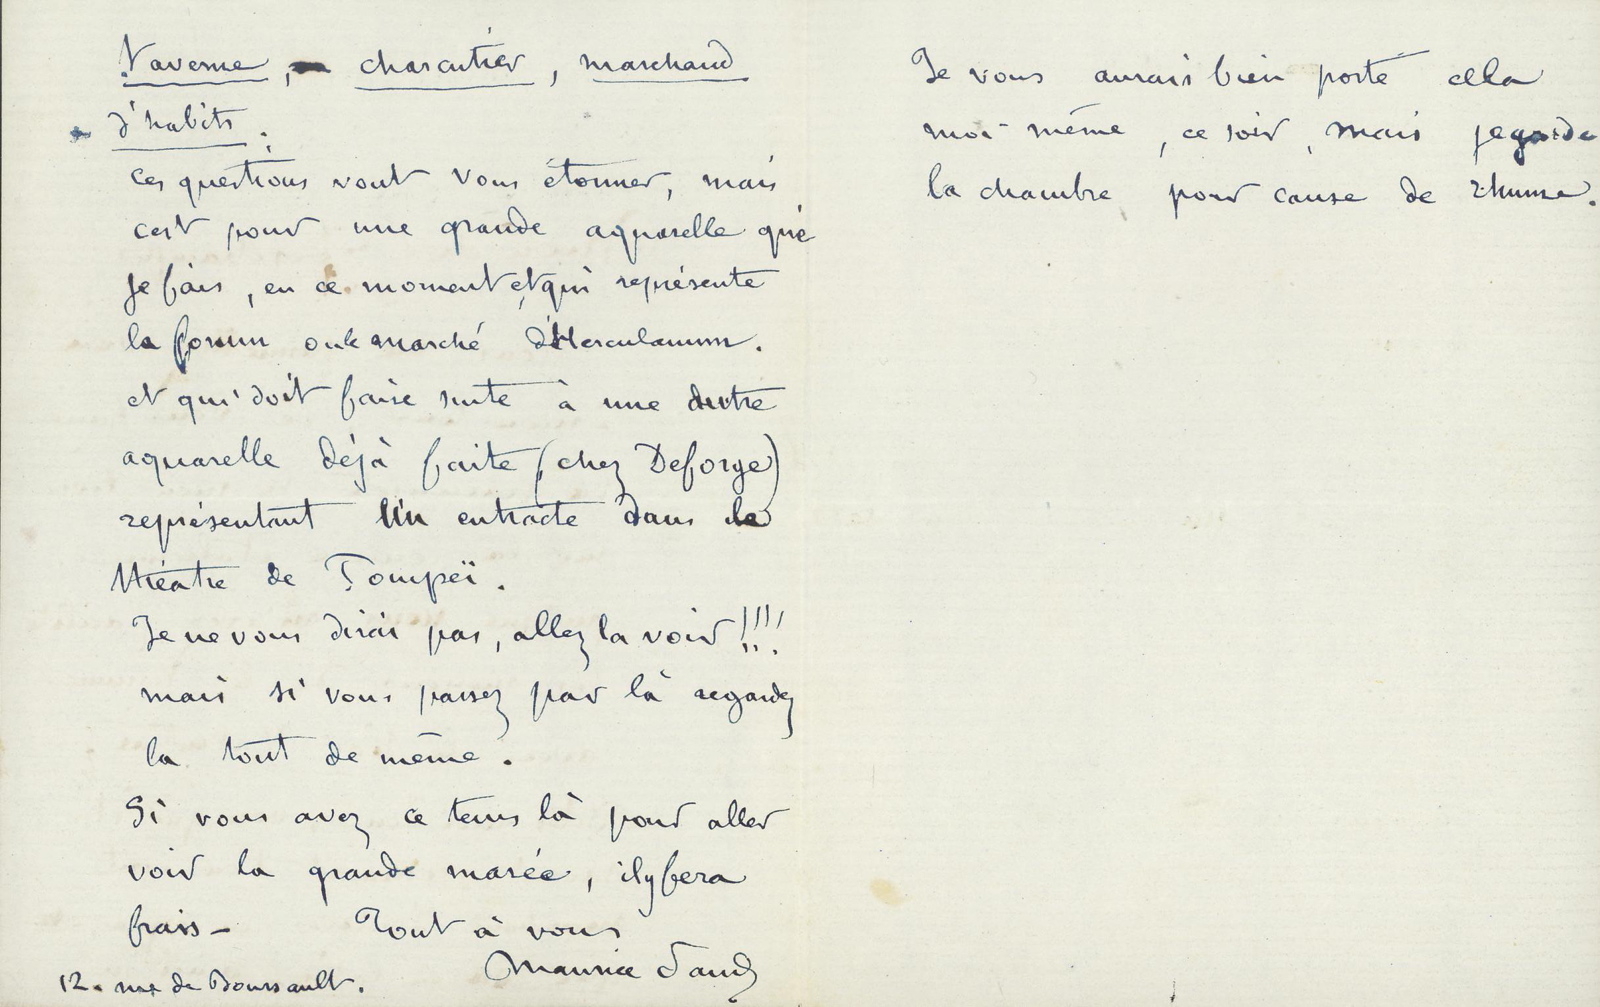 Taverne, charcutier, marchand
d'habits.
ces questions vont vous étonner, mais
c'est pour une grande aquarelle que
je fais, en ce moment et qui représente
le forum ou le marché d'Herculanum.
et qui doit faire suite à une autre
aquarelle déjà faite (chez Deforge)
représentant Un entracte dans le
théatre de Pompeï.
Je ne vous dirai pas, allez la voir!!!!
mais si vous passez par là regardez
la tout de même.
Si vous avez ce tems là pour aller
voir la grande marée, il y fera
frais – Tout à vous
Maurice Sand
12. rue de Boursault.
Je vous aurais bien porté cela
moi-même, ce soir, mais je garde
la chambre pour cause de rhume.